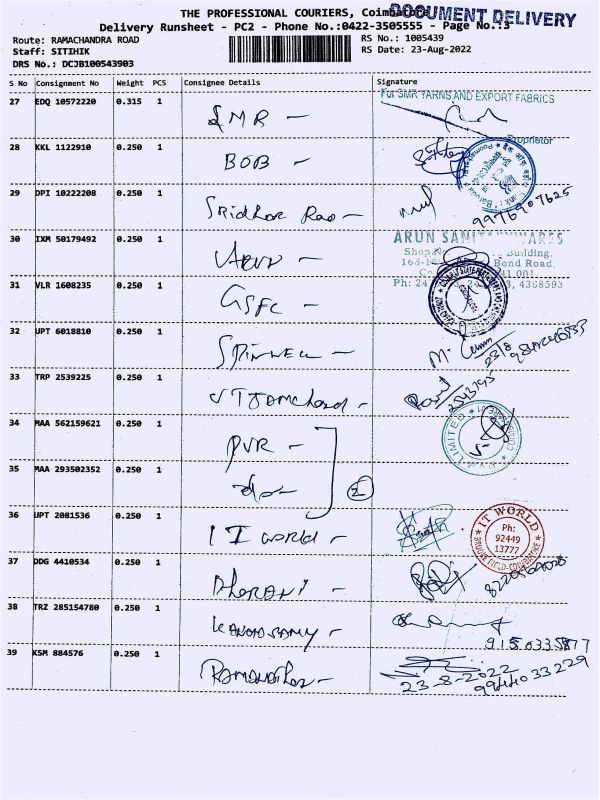 THE PROFESSIONAL COURIERS, Coimbatore
DOCUMENT DELIVERY
Delivery Runsheet - PC2 - Phone No.:0422-3505555 - Page No.:3
Route: RAMACHANDRA ROAD
RS No.: 1005439
Staff: SITIHIK
RS Date: 23-Aug-2022
DRS No.: DCJB100543903
S No Consignment No Weight PCS Consignee Details Signature
27 EDQ 10572220 0.315 1 SMR -
For SMR YARNS AND EXPORT FABRICS
Proprietor
28 KKL 1122910 0.250 1 BOB -
29 DPI 10222208 0.250 1 Sridhar Rao -
30 IXM 50179492 0.250 1 ARUN -
ARUN SANITARYWARES
Building,
Bond Road,
Ph: 24 4368593
31 VLR 1608235 0.250 1 GSFC -
32 UPT 6018810 0.250 1 SPINWELL -
33 TRP 2539225 0.250 1
2543745
34 MAA 562159621 0.250 1 PVR -
LIMITED
35 MAA 293502352 0.250 1 do - 2
36 UPT 2081536 0.250 1 IT WORLD -
IT WORLD
Ph:
92449
13777
BROOKE FIELD-COIMBATORE
37 DDG 4410534 0.250 1 DHARANI -
38 TRZ 285154780 0.250 1 KANDASAMY -
39 KSM 884576 0.250 1
23-8-2022
9944033229